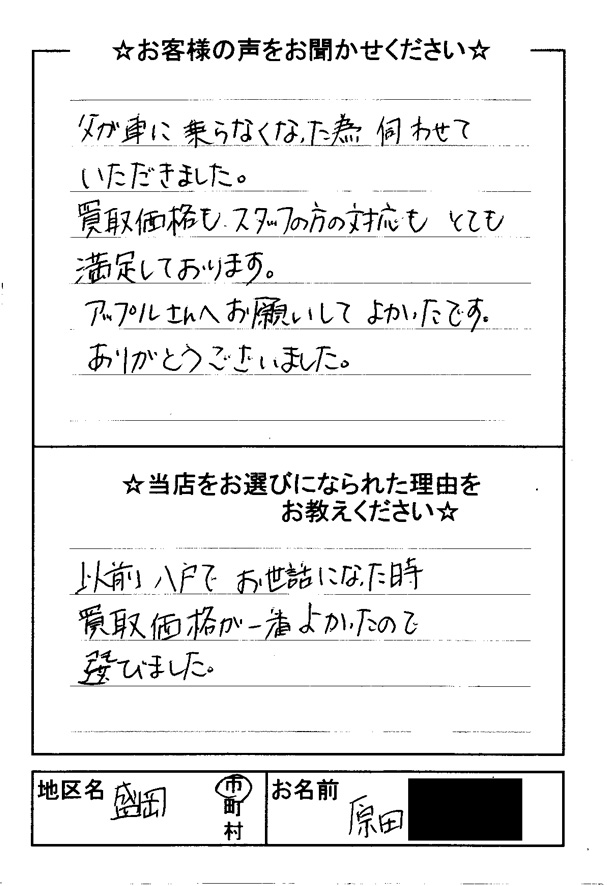 ☆お客様の声をお聞かせください☆
父が車に乗らなくなった為 伺わせて
いただきました。
買取価格も、スタッフの方の対応も とても
満足しております。
アップルさんへお願いして よかったです。
ありがとうございました。
☆当店をお選びになられた理由を
お教えください☆
以前 八戸で お世話になった時
買取価格が一番よかったので
選びました。
地区名 盛岡 市
町
村
お名前 原田